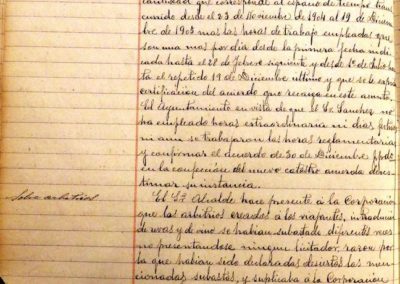 cantidad que corresponde al espacio de tiempo trans-
currido desde el 23 de Noviembre de 1904 al 19 de Diciem-
bre de 1905 mas las horas de trabajo empleadas que
son una mas por día desde la primera fecha indi-
cada hasta el 28 de Febrero siguiente y desde 1º de Julio has-
ta el repetido 19 de Diciembre último y que se le expida
certificacion del acuerdo que recaiga en este asunto.
El Ayuntamiento en vista de que el Sr. Sanchez no
ha empleado horas extraordinaria ni dias festivos
ni aun se trabajaron las horas reglamentarias
y confirmas el acuerdo de 30 de Diciembre ppdo
en la confeccion del nuevo catastro acuerda deses-
timar su instancia.
Sobre arbitrios
El Sr. Alcalde hace presente á la Corporacion
que los arbitrios creados á los viajantes, introduccion
de uvas y de vino se habian subastado diferentes veces
no presentandose ningun licitador, razon por
la que habian sido declaradas desiertas las men-
cionadas subastas, y suplicaba á la Corporacion